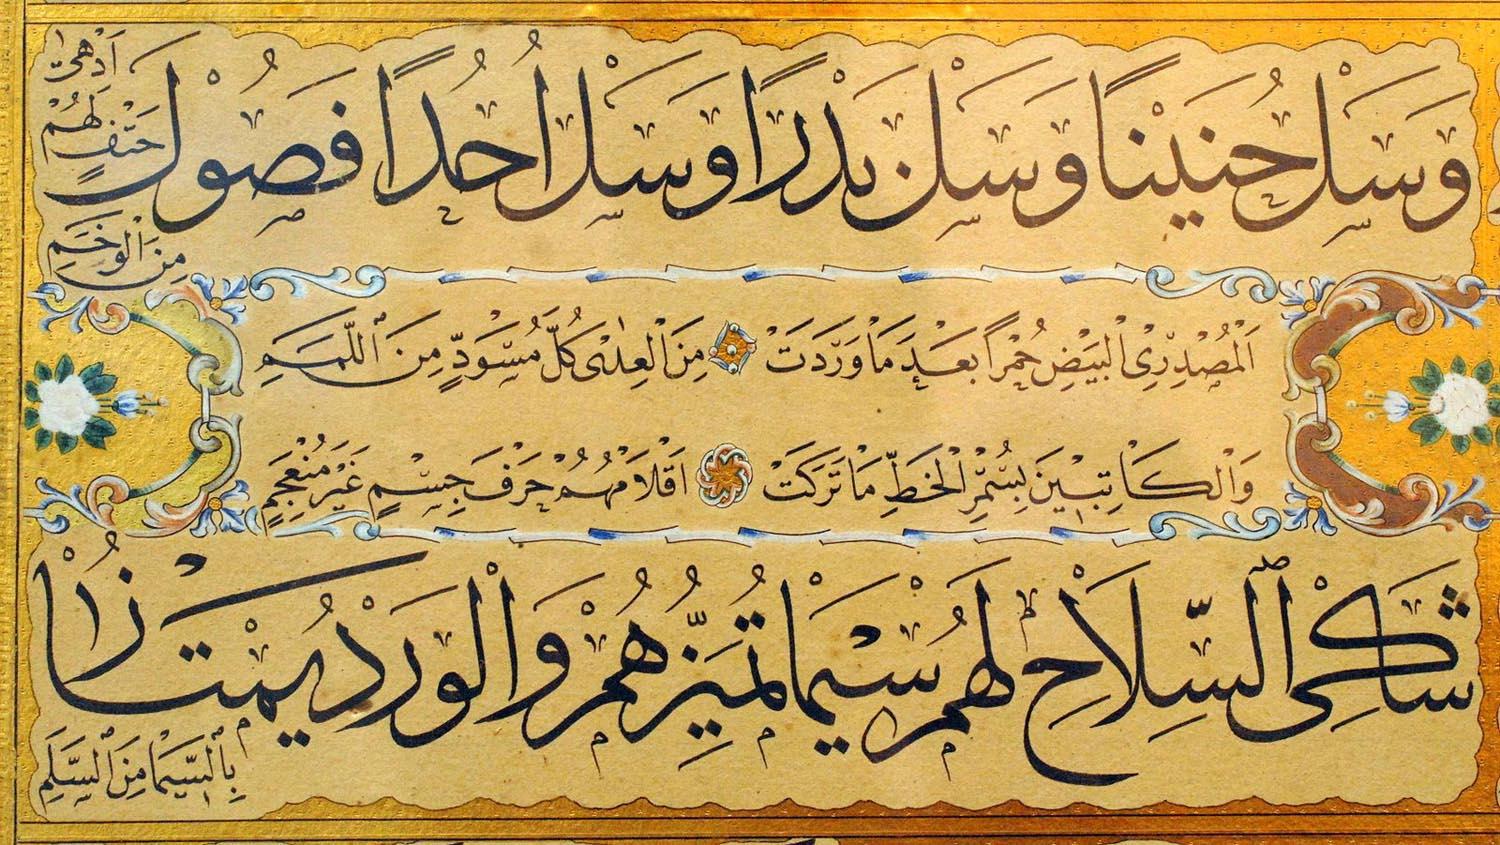 وَسَلْ حُنَيْنًا وَسَلْ بَدْرًا وَسَلْ اُحُدًا فَصُوْلَ
حَتْفٍ لَهُمْ اَدْهٰى
مِنَ الْوَخَمِ
اَلْمُصْدِرِى الْبَيْضِ حُمْرًا بَعْدَ مَا وَرَدَتْ مِنَ الْعِدٰى كُلَّ مُسْوَدٍّ مِنَ اللِّمَمِ
وَالْكَاتِبِيْنَ بِسُمْرِ الْخَطِّ مَا تَرَكَتْ اَقْلَامُهُمْ حَرْفَ جِسْمٍ غَيْرَ مُنْعَجِمِ
شَاكِى السِّلَاحِ لَهُمْ سِيْمَا تُمَيِّزُهُمْ وَالْوَرْدُ يَمْتَازُ
بِالسِّيْمَا مِنَ السَّلَمِ